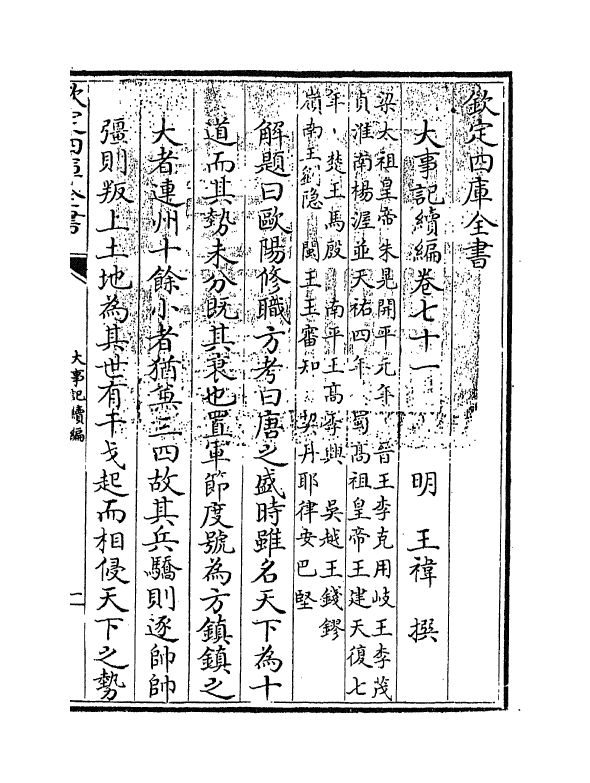 欽定四庫全書
大事記續編卷七十一　明　王禕　撰
梁太祖皇帝朱晃開平元年　晉王李克用岐王李茂
貞淮南楊渥並天祐四年　蜀高祖皇帝王建天復七
年　楚王馬殷　南平王高季興　吳越王錢鏐
嶺南王劉隱　閩王王審知　契丹耶律安巴堅
解題曰歐陽修職方考曰唐之盛時雖名天下為十
道而其勢未分既其衰也置軍節度號為方鎮鎮之
大者連州十餘小者猶兼三四故其兵驕則逐帥帥
彊則叛上土地為其世有干戈起而相侵天下之勢
欽定四庫全書
大事記續編